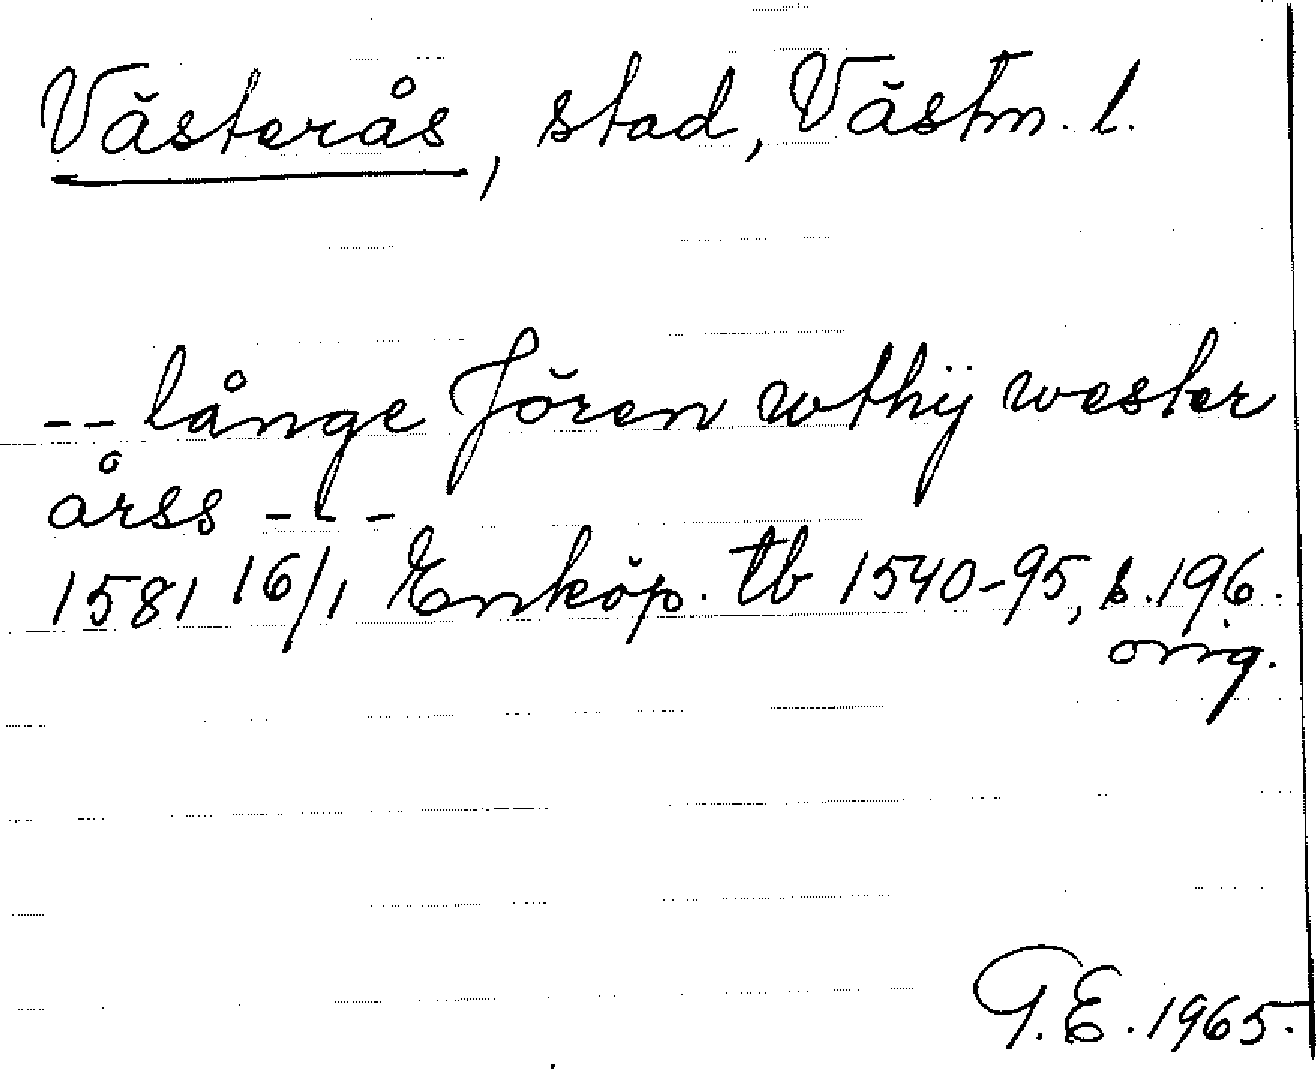 Västerås, stad, Västm. l.
-- långe Jören wthÿ wester
årss - - -
1581 16/1 Enköp. tb 1540-95, s. 196.
orig.
G.E. 1965.